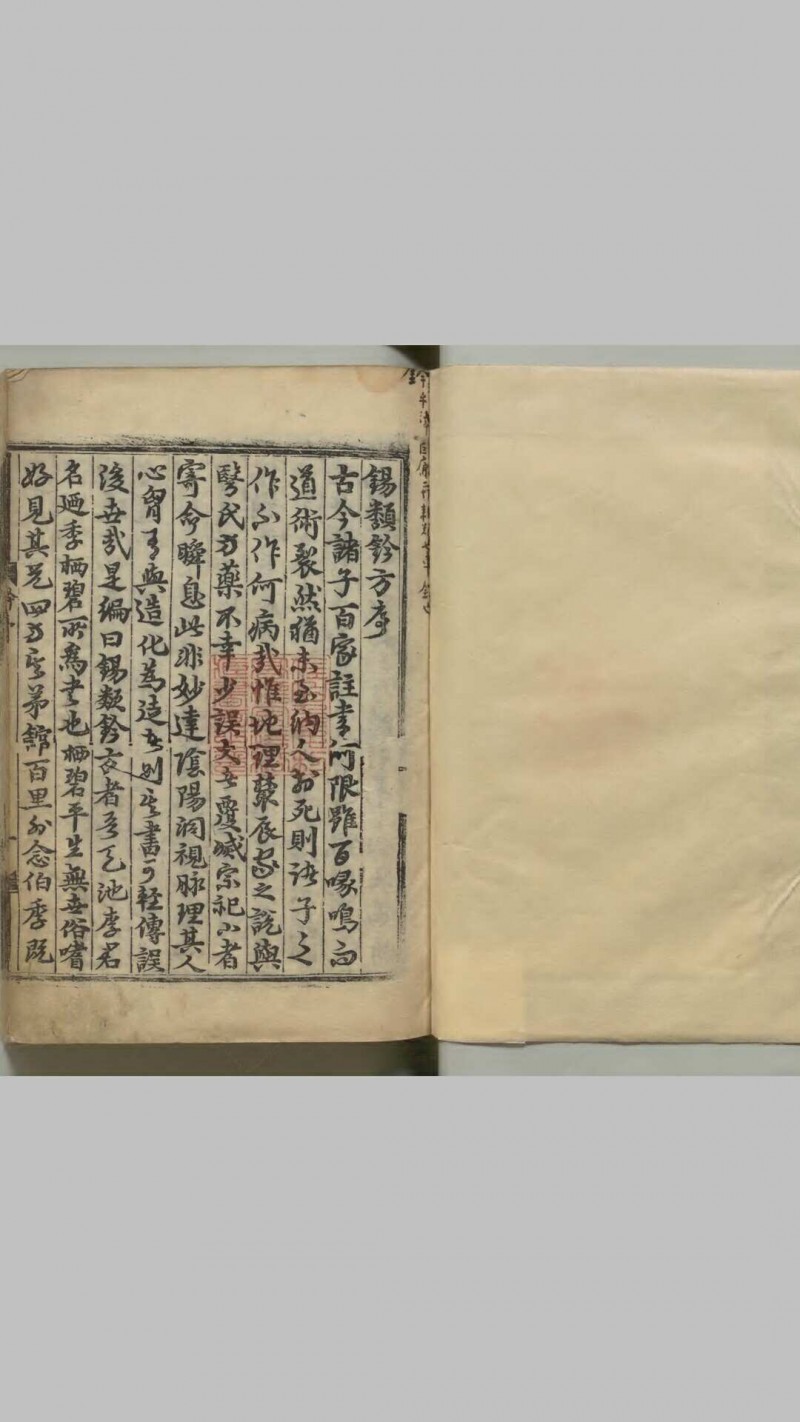 錫類鈐方序
古今諸子百家註書何限雖百喙鳴而
道術裂然猶未至納人於死則諸子之
作不作何病哉惟地理蓺辰家之說與
毉氏方藥不幸少誤大者覆滅宗祀小者
寄命瞬息此非妙達陰陽洞視脉理其人
心胷有與造化為徒者則其書可輕傳誤
後世哉是編曰錫類鈐方者吾天池李君
名廼季栖碧所為書也栖碧平生無世俗嗜
好見其兄四方其弟館百里外念伯季既